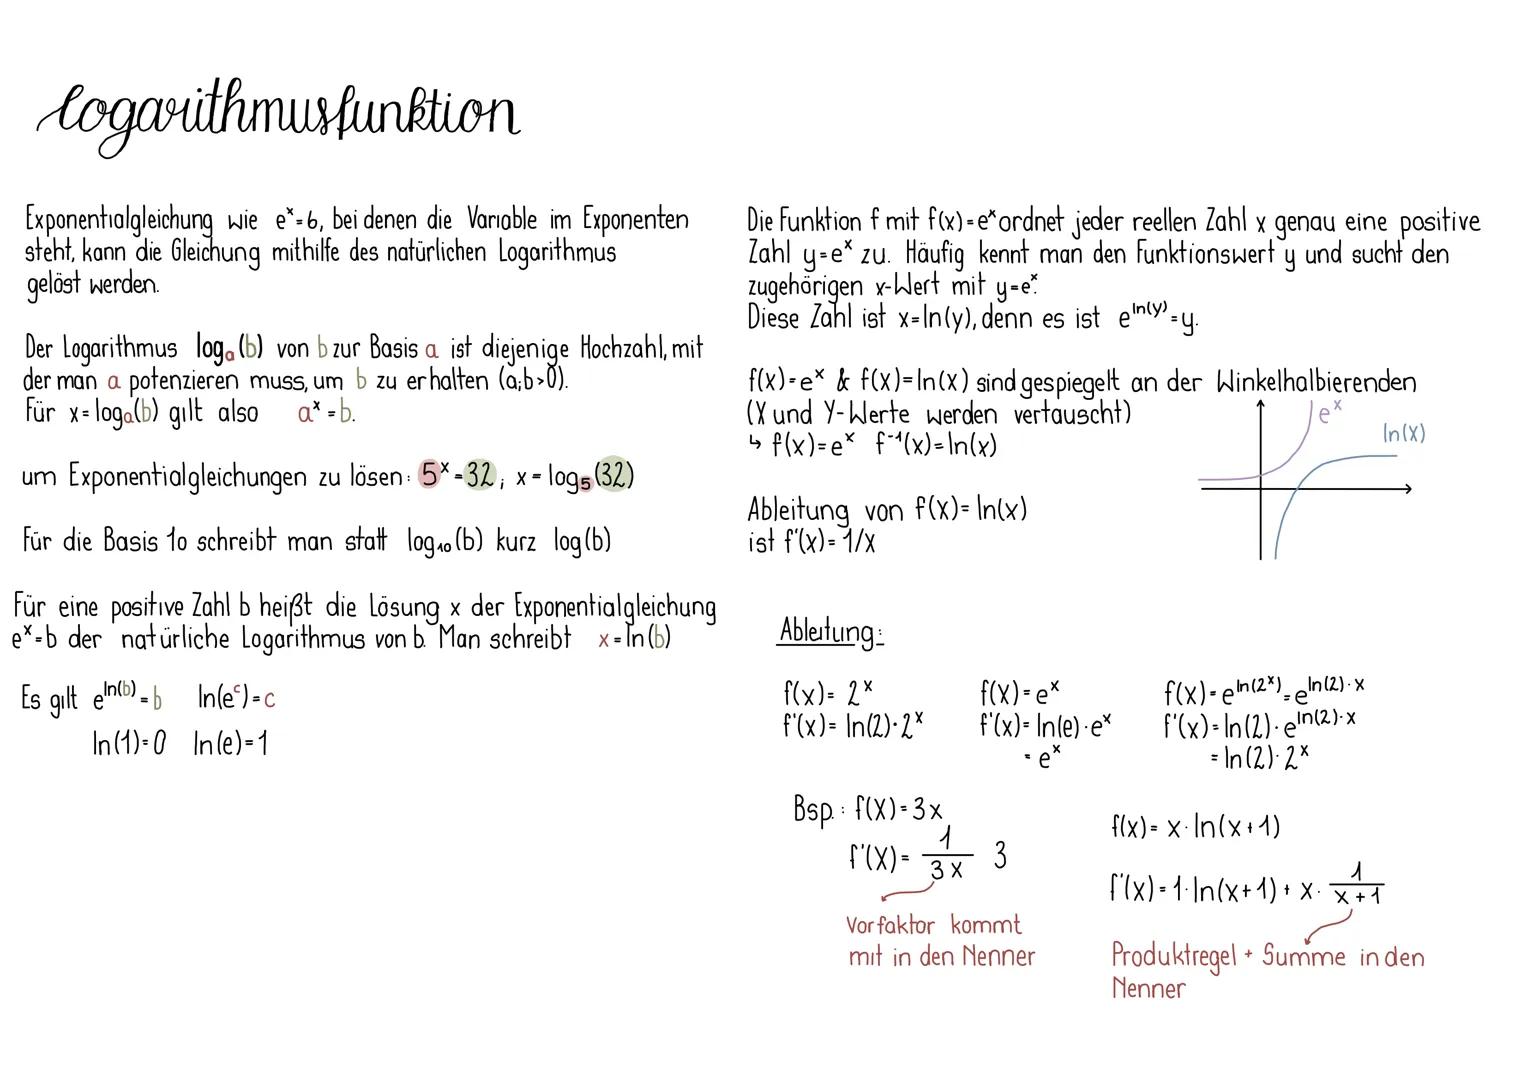 Logarithmusfunktion
Exponentialgleichung wie eˣ=6, bei denen die Variable im Exponenten
steht, kann die Gleichung mithilfe des natürlichen Logarithmus
gelöst werden.
Der Logarithmus logₐ(b) von b zur Basis a ist diejenige Hochzahl, mit
der man a potenzieren muss, um b zu erhalten (a;b>0).
Für x=logₐ(b) gilt also aˣ=b.
um Exponentialgleichungen zu lösen: 5ˣ=32; x=log₅(32)
Für die Basis 10 schreibt man statt log₁₀(b) kurz log(b)
Für eine positive Zahl b heißt die Lösung x der Exponentialgleichung
eˣ=b der natürliche Logarithmus von b. Man schreibt x=ln(b)
Es gilt e^ln(b)=b ln(e^c)=c
ln(1)=0 ln(e)=1
Die Funktion f mit f(x)=eˣ ordnet jeder reellen Zahl x genau eine positive
Zahl y=eˣ zu. Häufig kennt man den Funktionswert y und sucht den
zugehörigen x-Wert mit y=eˣ.
Diese Zahl ist x=ln(y), denn es ist e^ln(y)=y.
f(x)=eˣ & f(x)=ln(x) sind gespiegelt an der Winkelhalbierenden
(X und Y-Werte werden vertauscht)
↳ f(x)=eˣ f⁻¹(x)=ln(x)
eˣ
ln(x)
Ableitung von f(x)=ln(x)
ist f'(x)=1/x
Ableitung:
f(x)= 2ˣ
f'(x)= ln(2)·2ˣ
f(x)=eˣ
f'(x)=ln(e)·eˣ
= eˣ
f(x)=e^ln(2ˣ)=e^ln(2)·x
f'(x)=ln(2)·e^ln(2)·x
=ln(2)·2ˣ
Bsp.: f(x)=3x
f'(x)= 1/3x 3
Vorfaktor kommt
mit in den Nenner
f(x)= x·ln(x+1)
f'(x)=1·ln(x+1)+x· 1/x+1
Produktregel + Summe in den
Nenner